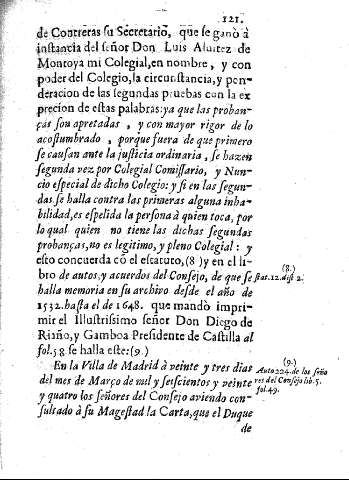 121.
de Contreras su Secretario, que se ganò à
instancia del señor Don Luis Alvarez de
Montoya mi Colegial, en nombre, y con
poder del Colegio, la circunstancia, y pon-
deracion de las segundas pruebas con la ex
precion de estas palabras: ya que las proban-
ças son apretadas, y con mayor rigor de lo
acostumbrado, porque fuera de que primero
se causan ante la justicia ordinaria, se hazen
segunda vez por Colegial Comissario, y Nun-
cio especial de dicho Colegio: y si en las segun-
das se halla contra las primeras alguna inha-
bilidad, es espelida la persona à quien toca, por
lo qual quien no tiene las dichas segundas
probanças, no es legitimo, y pleno Colegial: y
esto concuerda cõ el estatuto, (8) y en el li-
bro de autos, y acuerdos del Consejo, de que se
halla memoria en su archivo desde el año de
1532. hasta el de 1648. que mandò impri-
mir el Illustrissimo señor Don Diego de
Riaño, y Gamboa Presidente de Castilla al
fol. 58 se halla este: (9.)
En la Villa de Madrid à veinte y tres dias
del mes de Março de mil y seiscientos y veinte
y quatro los señores del Consejo aviendo con-
sultado à su Magestad la Carta, que el Duque
de
(8.)
stat. 12. dist 2.
(9.)
Auto 224. de los seño
res del Consejo lib. 5.
fol. 49.